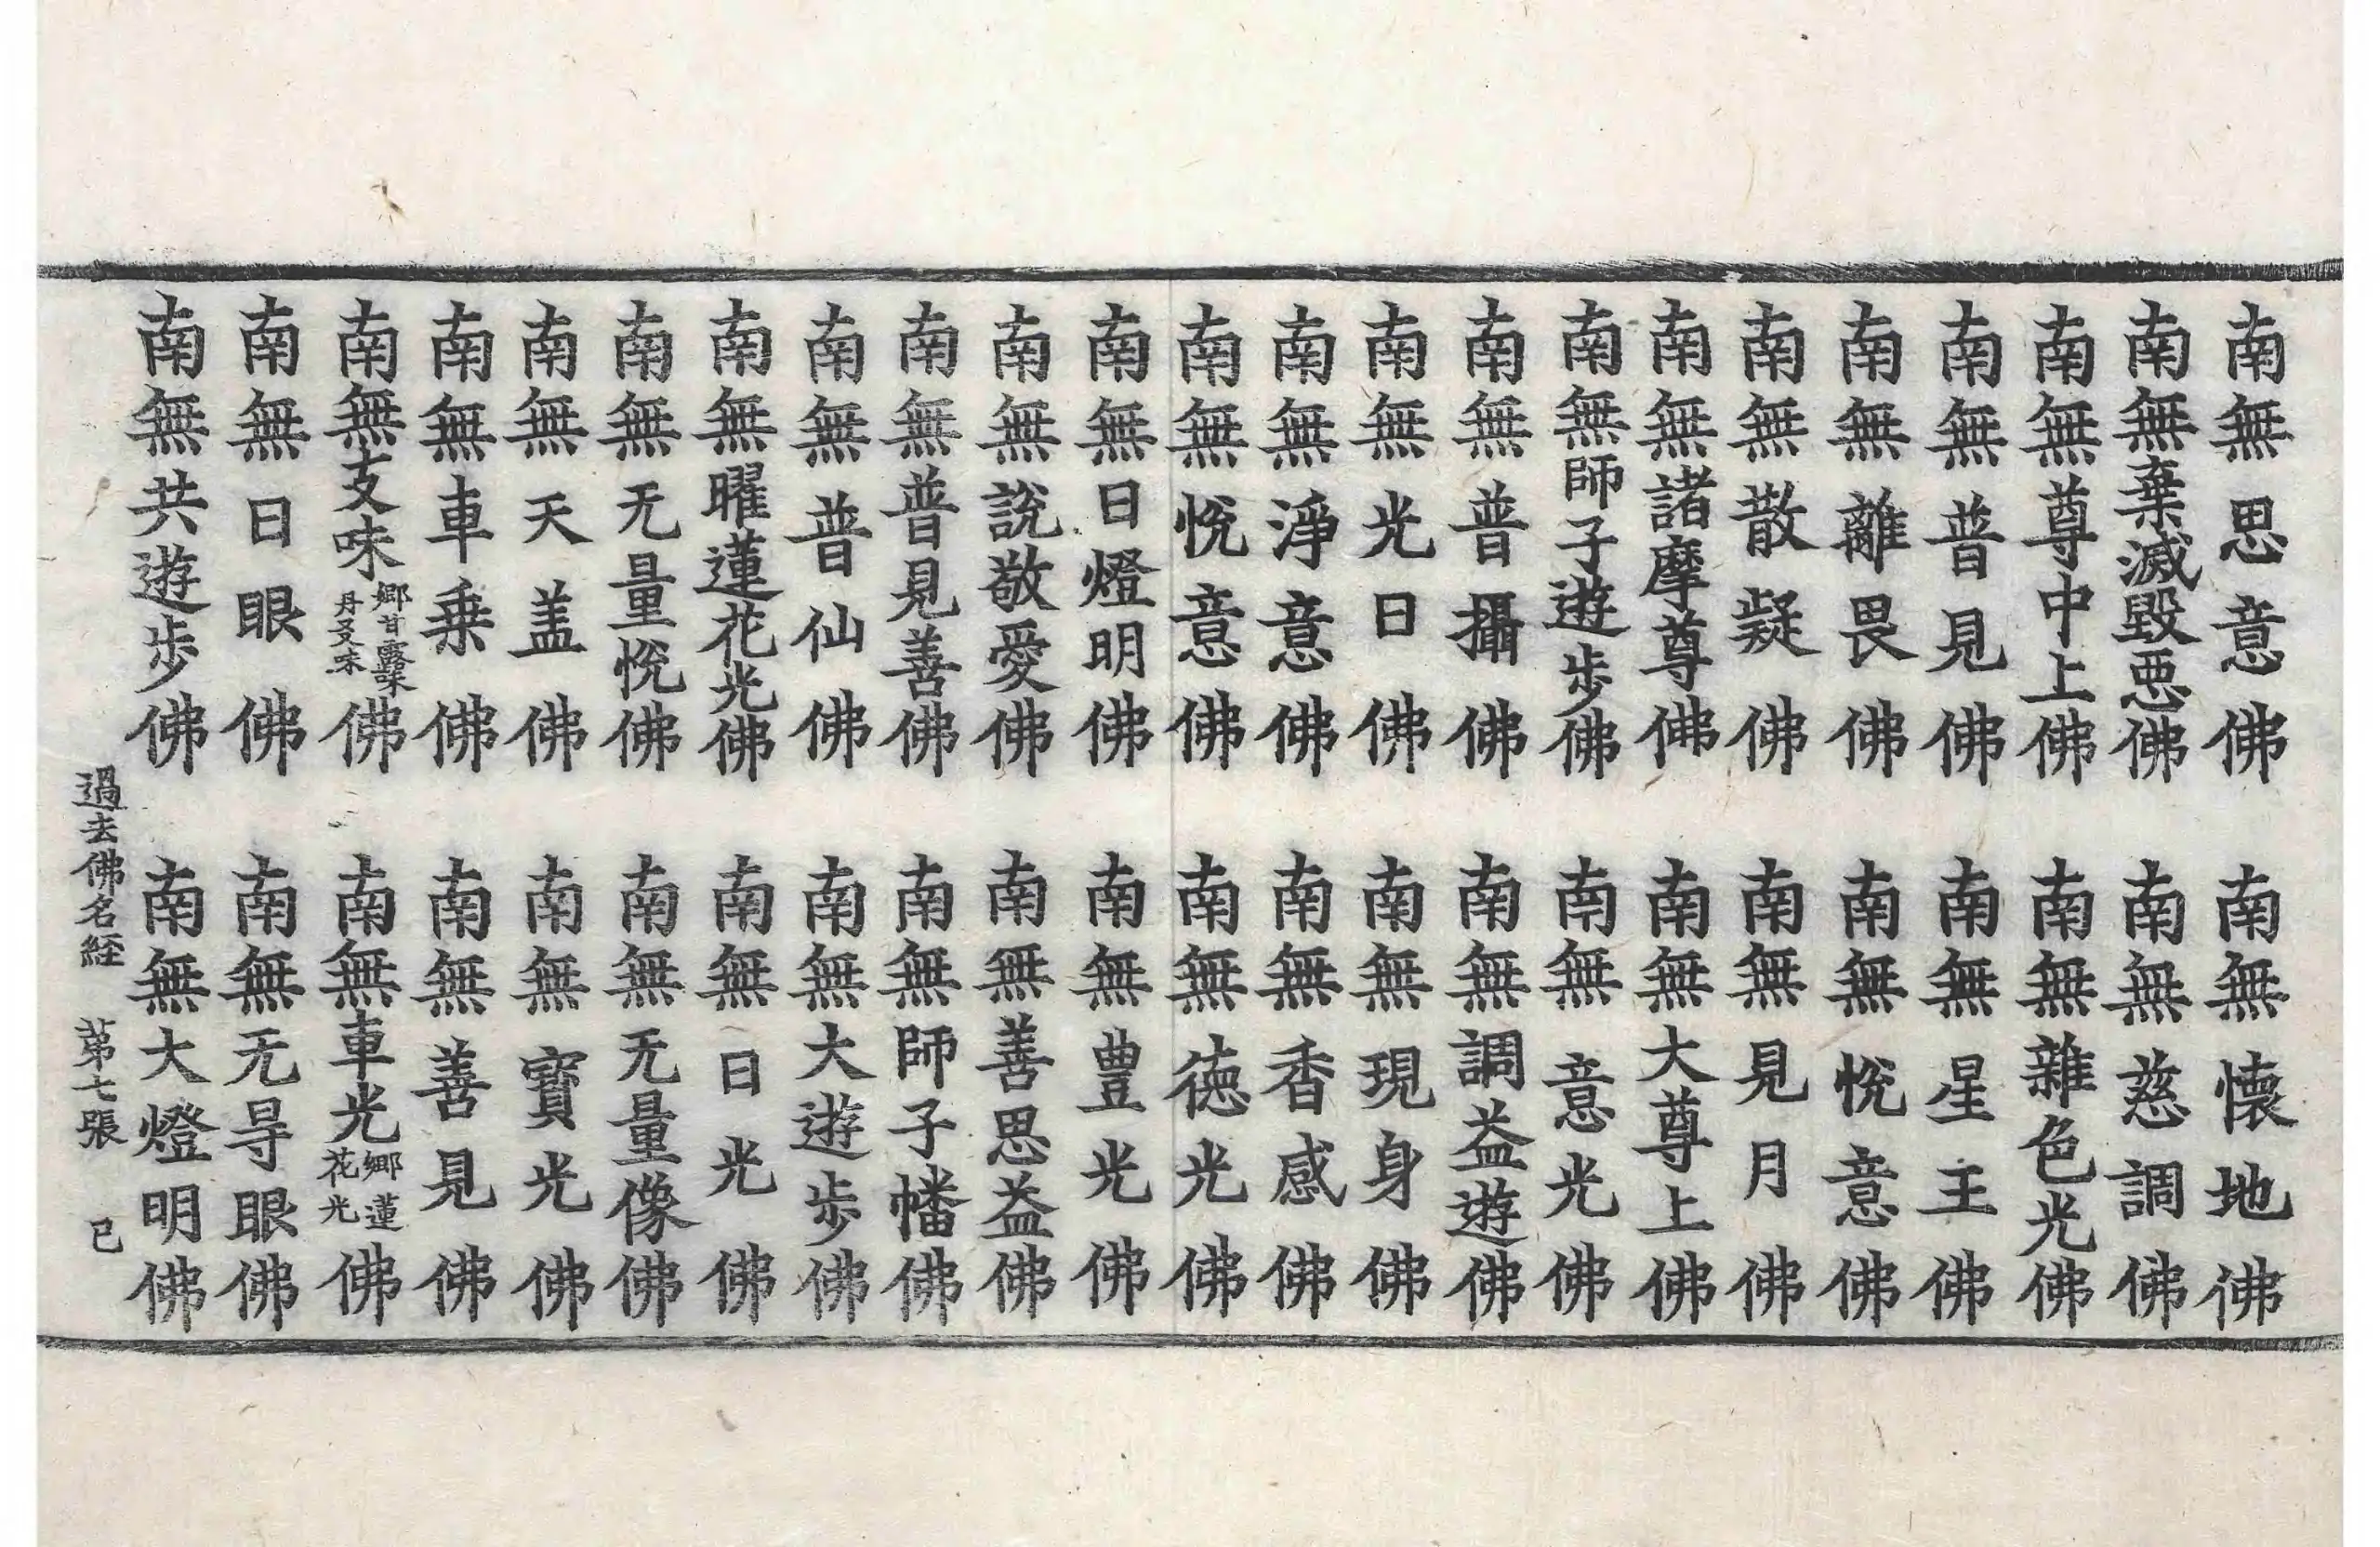 南無思意佛 南無懐地佛
南無棄滅毀惡佛 南無慈調佛
南無尊中上佛 南無雜色光佛
南無普見佛 南無星王佛
南無離畏佛 南無悅意佛
南無散疑佛 南無見月佛
南無諸摩尊佛 南無大尊上佛
南無師子遊步佛 南無意光佛
南無普攝佛 南無調益遊佛
南無光日佛 南無現身佛
南無淨意佛 南無香感佛
南無悅意佛 南無徳光佛
南無日燈明佛 南無豊光佛
南無說敬愛佛 南無善思益佛
南無普見善佛 南無師子幡佛
南無普仙佛 南無大遊步佛
南無曜蓮花光佛 南無日光佛
南無无量悅佛 南無无量像佛
南無天盖佛 南無寶光佛
南無車乗佛 南無善見佛
南無支味鄉甘露味丹叉味佛 南無車光鄉蓮花光佛
南無日眼佛 南無无㝵眼佛
南無共遊步佛 南無大燈明佛
過去佛名経 苐七張 己